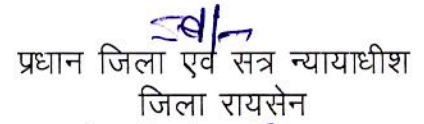 प्रधान जिला एवं सत्र न्यायाधीश
जिला रायसेन